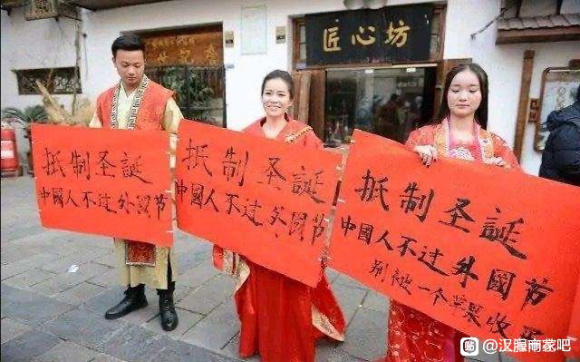 匠心坊
抵制圣誕
中國人不过外國节
抵制圣誕
中國人不过外国节
抵制圣誕
中國人不过外國节
别被一个苹果收